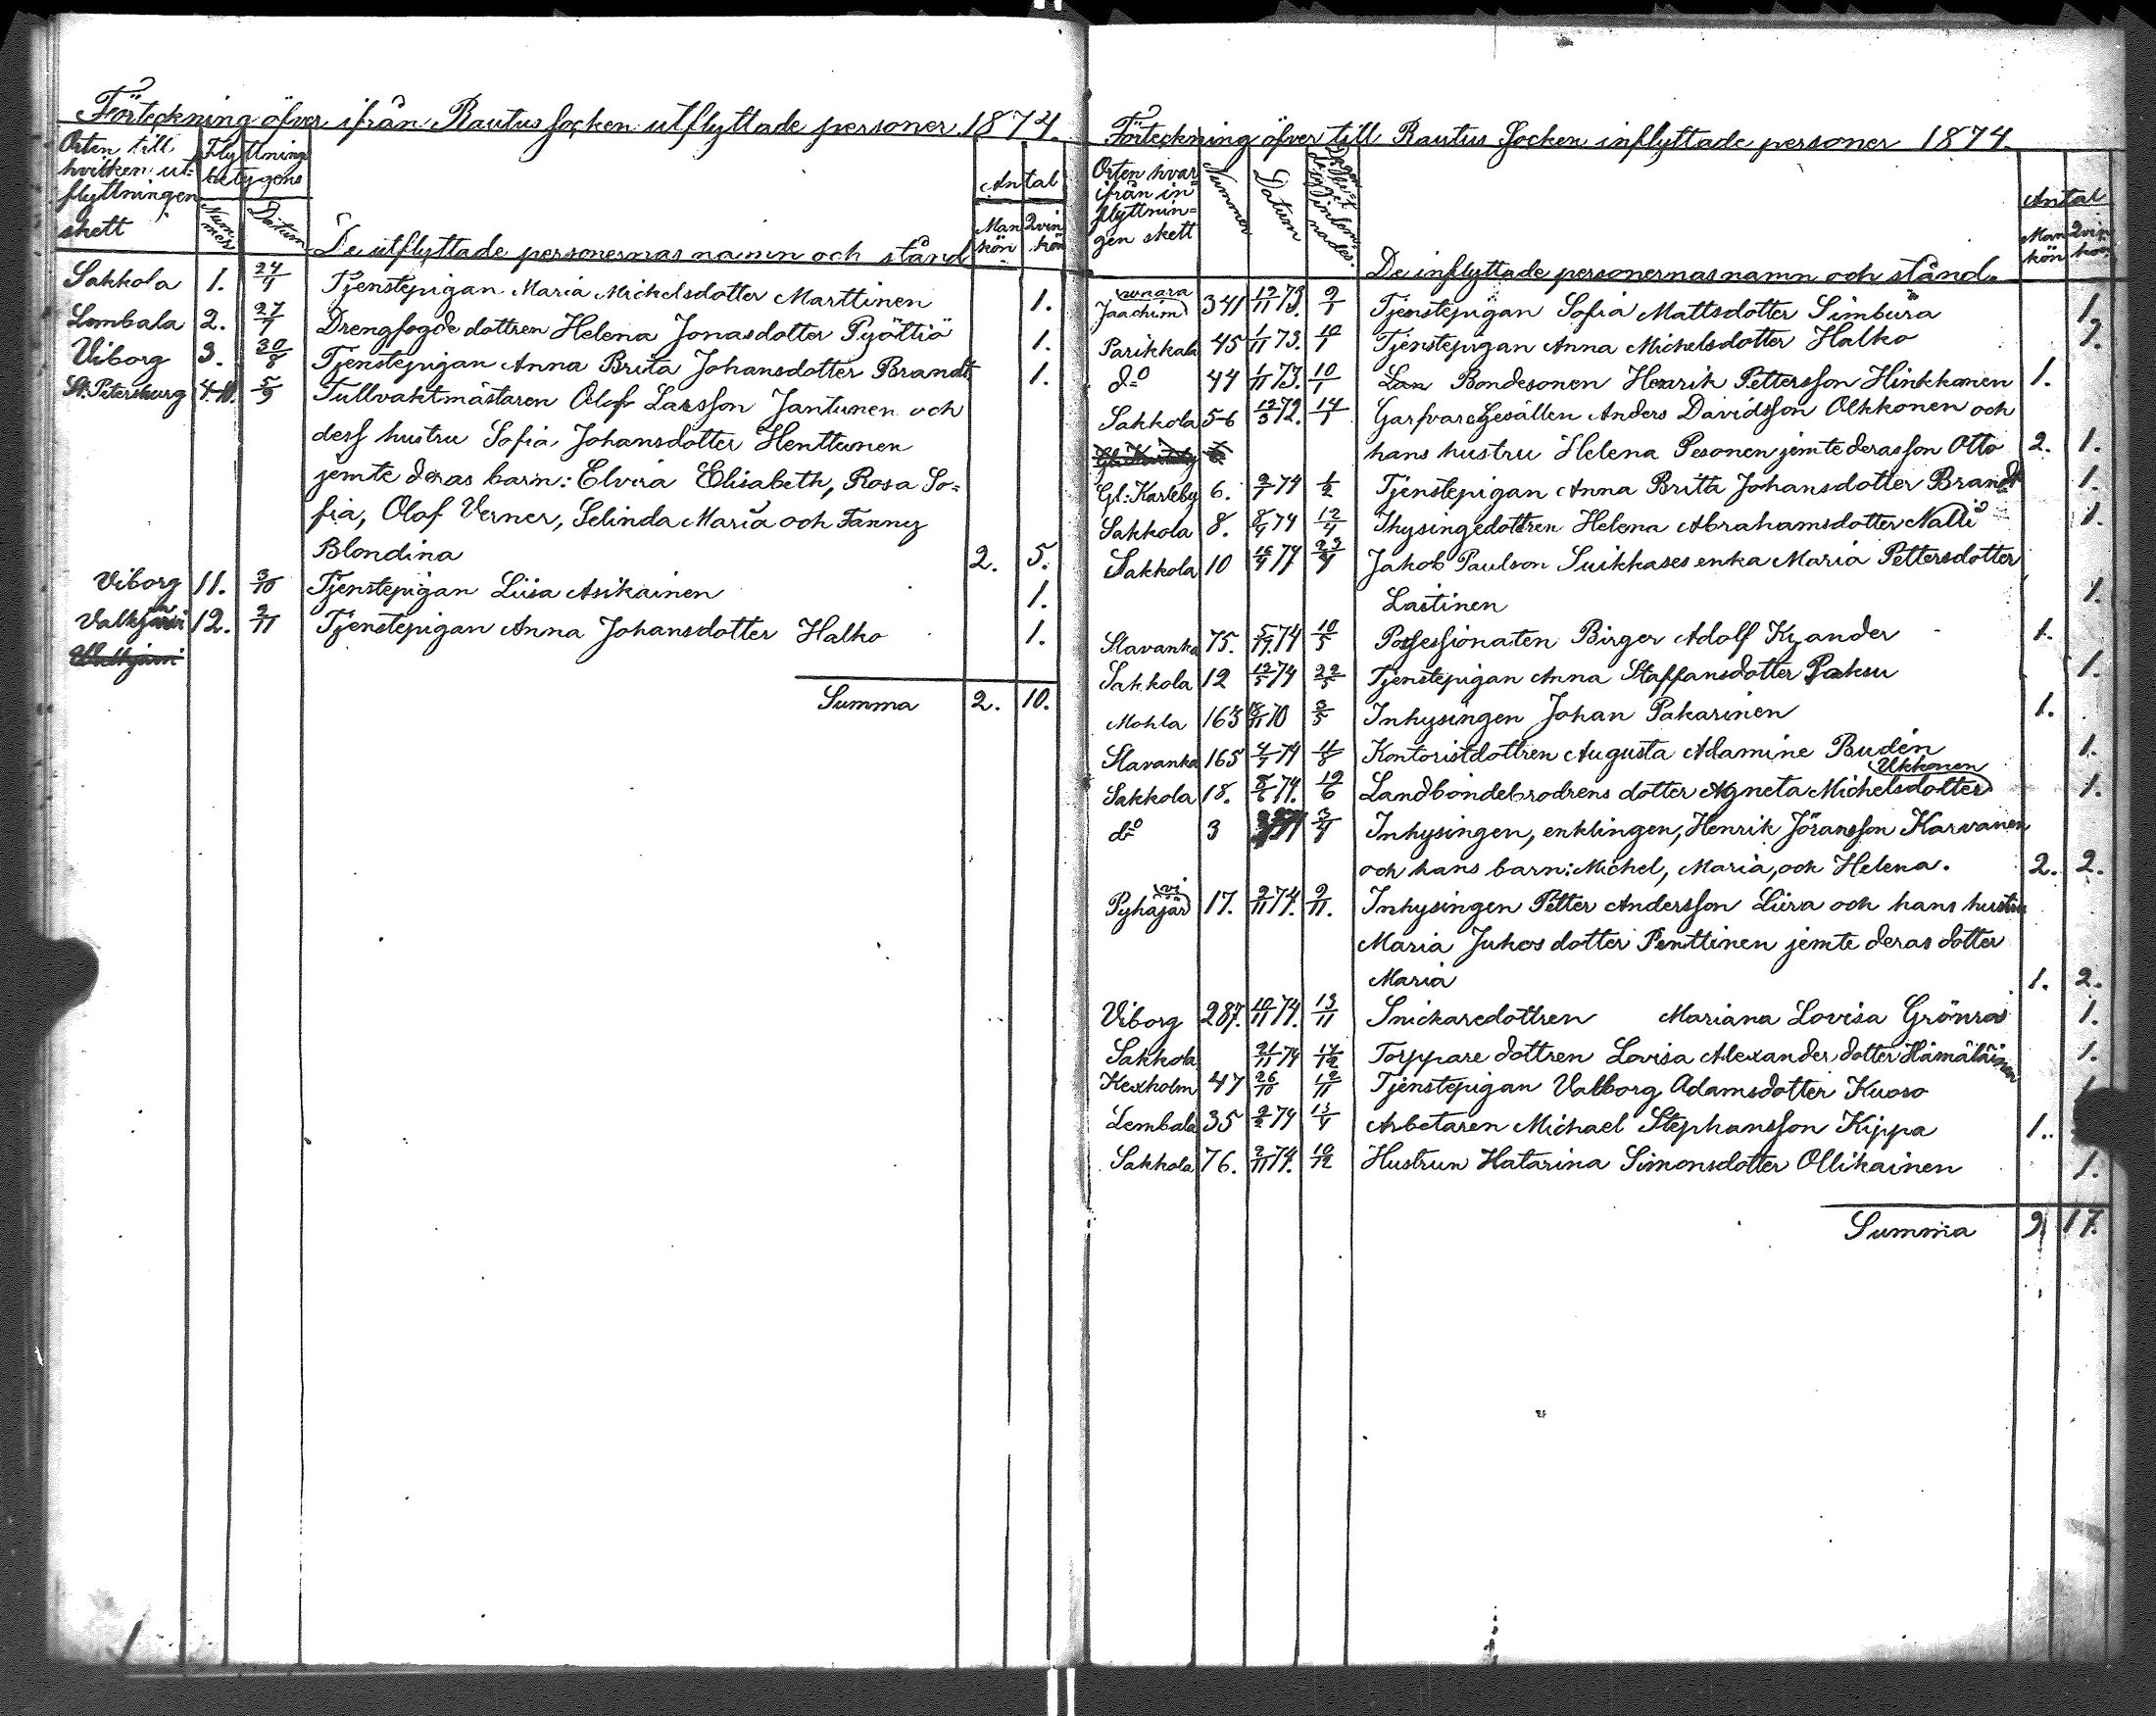 Förteckning öfver ifrån Rautus socken utflyttade personer 1874.
Orten till hvilken utflyttningen skett
Flyttningsbetygens
Nummer
Datum
De utflyttade personernas namn och stånd
Antal
Mankön
Qvinkön
Sakkola 1. 24/1 Tjenstepigan Maria Michelsdotter Marttinen 1.
Lembala 2. 27/1 Drengfogde dottren Helena Jonasdotter Pyöttiö 1.
Viborg 3. 30/8 Tjenstepigan Anna Brita Johansdotter Brandt 1.
St. Petersburg 4-10. 5/9 Tullvaktmästaren Olof Larsson Jantunen och
dess hustru Sofia Johansdotter Henttunen
jemte deras barn: Elvira Elisabeth, Rosa So=
fia, Olof Verner, Selinda Maria och Fanny
Blondina 2. 5.
Viborg 11. 3/10 Tjenstepigan Liisa Asikainen 1.
Valkjärvi 12. 2/11 Tjenstepigan Anna Johansdotter Halko 1.
Valkjärvi
Summa 2. 10.
Förteckning öfver till Rautus socken inflyttade personer 1874.
Orten hvarifrån inflyttnin=gen skett
Nummer
Datum
De inflyttade personernas namn och stånd.
Antal
Mankön
Qvinkön
Jaachim vaara 341 12/11 73. 9/1 Tjenstepigan Sofia Mattsdotter Simbura 1.
Parikkala 45 1/11 73. 10/1 Tjenstepigan Anna Michelsdotter Halko 1.
do 44 1/11 73. 10/1 Bondesonen Henrik Pettersson Hinkkanen 1.
Sakkola 5-6 12/3 72. 14/1 Garfvaregesällen Anders Davidsson Olkkonen och
hans hustru Helena Pesonen jemte deras son Otto 2. 1.
Gl: Karleby 6. 2/1 74 1/2 Tjenstepigan Anna Brita Johansdotter Brandt 1.
Sakkola 8. 8/4 74 12/4 Ihysingedottren Helena Abrahamsdotter Nalli 1.
Sakkola 10 16/4 74 23/4 Jakob Paulson Suikkases enka Maria Pettersdotter
Lastinen 1.
Slavanka 75. 5/19 74 10/5 Possessionaten Birger Adolf Kyander 1.
Sakkola 12 12/5 74 22/5 Tjenstepigan Anna Staffansdotter Paksu 1.
Mohla 163 18/11 70 3/5 Inhysingen Johan Pakarinen 1.
Slavanka 165 4/7 74 11/8 Kontoristdottren Augusta Adamine Budén 1.
Sakkola 18. 8/6 74. 12/6 Landbondebrodrens dotter Agneta Michelsdotter Ukkonen 1.
do 3 3/4 Inhysingen, enklingen, Henrik Jöransson Karvanen
och hans barn: Michel, Maria, och Helena. 2. 2.
Pyhäjärvi 17. 2/11 74. 9/11. Inhysingen Petter Andersson Liira och hans hustru
Maria Juhos dotter Penttinen jemte deras dotter
Maria 1. 2.
Viborg 287. 10/11 74. 13/11 Snickaredottren Mariana Lovisa Grönros 1.
Sakkola 21/11 74 14/12 Torppare dottren Lovisa Alexander dotter Hämäläinen 1.
Kexholm 47 26/10 12/11 Tjenstepigan Valborg Adamsdotter Kuoso
Lembala 35 2/2 74 13/4 Arbetaren Michael Stephansson Kippa 1.
Sakkola 76. 2/11 74. 10/12 Hustrun Katarina Simonsdotter Ollikainen 1.
Summa 9 17.